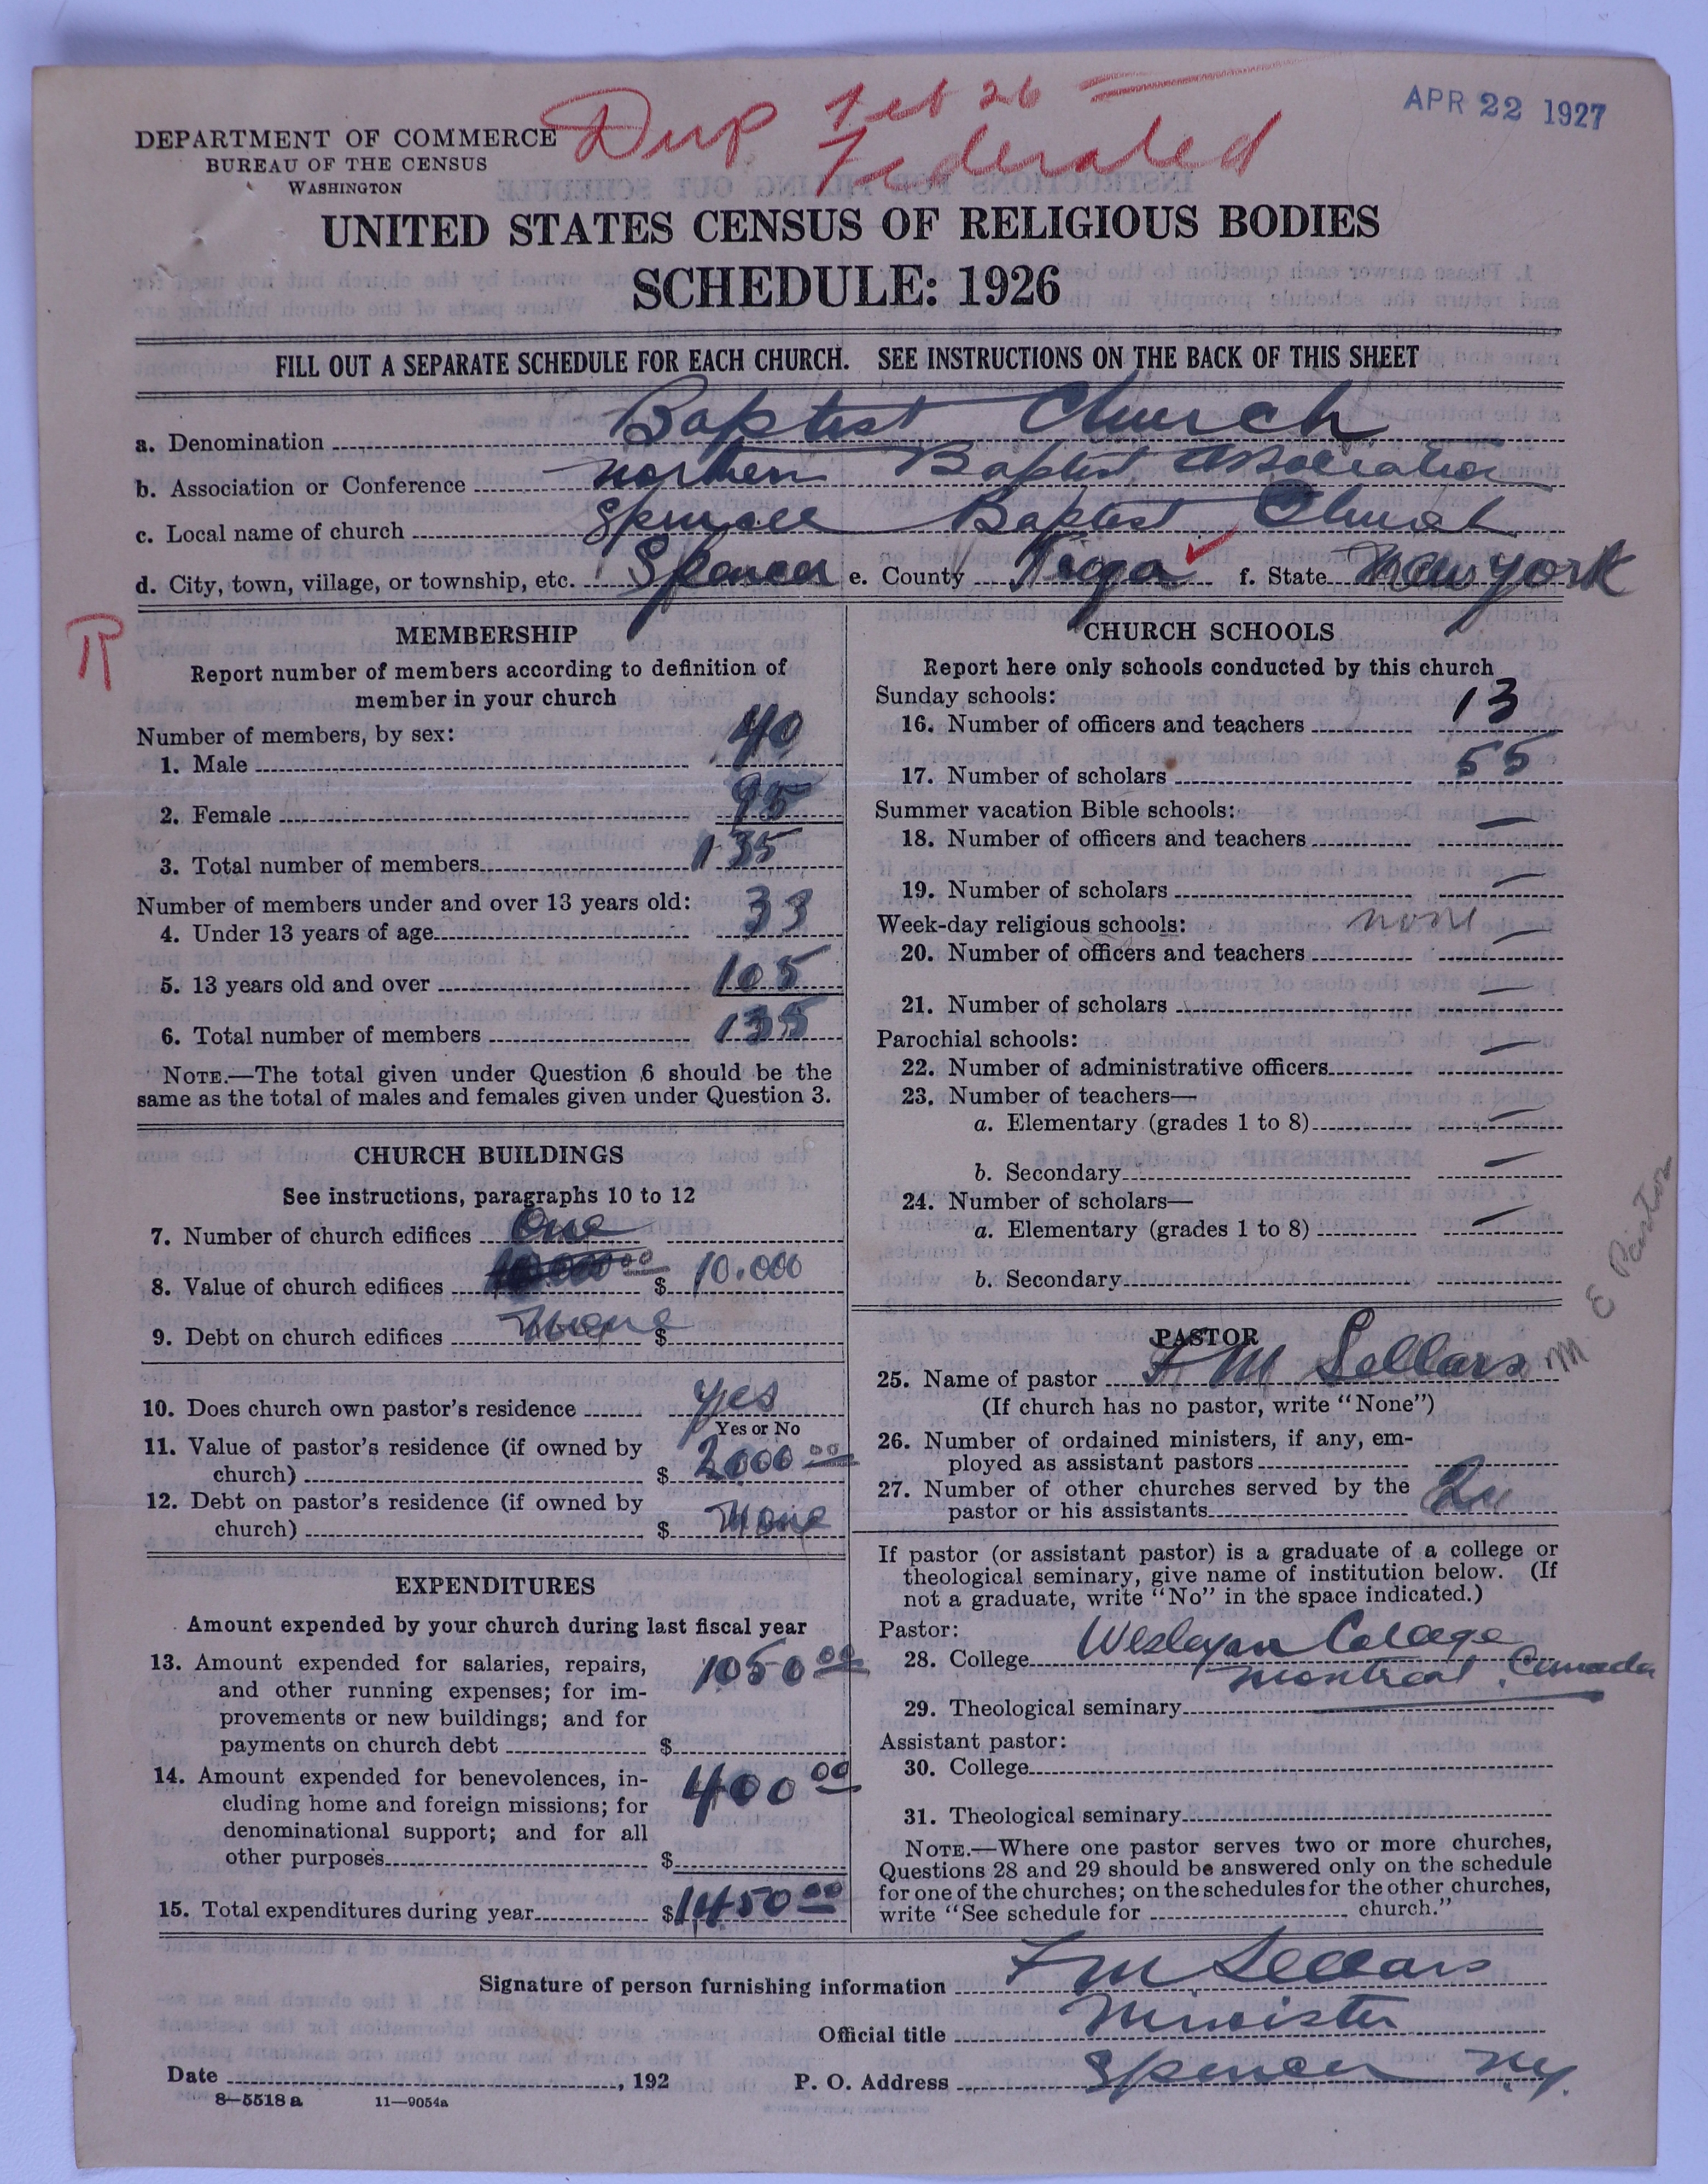 Dup Feb 26
Federated
APR 22 1927
DEPARTMENT OF COMMERCE
BUREAU OF THE CENSUS
WASHINGTON
UNITED STATES CENSUS OF RELIGIOUS BODIES
SCHEDULE: 1926
FILL OUT A SEPARATE SCHEDULE FOR EACH CHURCH. SEE INSTRUCTIONS ON THE BACK OF THIS SHEET
a. Denomination Baptist Church
b. Association or Conference Northern Baptist Association
c. Local name of church Baptist Church
d. City, town, village, or township, etc. Spencer e. County Tioga f. State New York
MEMBERSHIP
Report number of members according to definition of
member in your church
Number of members, by sex:
1. Male 40
2. Female 95
3. Total number of members 135
Number of members under and over 13 years old:
4. Under 13 years of age 33
5. 13 years old and over 105
6. Total number of members 135
NOTE.—The total given under Question 6 should be the
same as the total of males and females given under Question 3.
CHURCH BUILDINGS
See instructions, paragraphs 10 to 12
7. Number of church edifices One
8. Value of church edifices $ 10.000
9. Debt on church edifices None $
10. Does church own pastor's residence yes
Yes or No
11. Value of pastor's residence (if owned by
church) $ 2000 00
12. Debt on pastor's residence (if owned by
church) $ None
EXPENDITURES
Amount expended by your church during last fiscal year
13. Amount expended for salaries, repairs, 1050 00
and other running expenses; for im-
provements or new buildings; and for
payments on church debt $
14. Amount expended for benevolences, in- 400 00
cluding home and foreign missions; for
denominational support; and for all
other purposes $
15. Total expenditures during year $ 1450 00
CHURCH SCHOOLS
Report here only schools conducted by this church
Sunday schools:
16. Number of officers and teachers 13
17. Number of scholars 55
Summer vacation Bible schools:
18. Number of officers and teachers —
19. Number of scholars —
Week-day religious schools: none
20. Number of officers and teachers —
21. Number of scholars —
Parochial schools:
22. Number of administrative officers —
23. Number of teachers—
a. Elementary (grades 1 to 8) —
b. Secondary —
24. Number of scholars—
a. Elementary (grades 1 to 8) —
b. Secondary
PASTOR
25. Name of pastor F M Sellars
(If church has no pastor, write "None")
26. Number of ordained ministers, if any, em-
ployed as assistant pastors
27. Number of other churches served by the
pastor or his assistants
If pastor (or assistant pastor) is a graduate of a college or
theological seminary, give name of institution below. (If
not a graduate, write "No" in the space indicated.)
Pastor:
28. College Wesleyan College
Montreal. Canada
29. Theological seminary
Assistant pastor:
30. College
31. Theological seminary
NOTE.—Where one pastor serves two or more churches,
Questions 28 and 29 should be answered only on the schedule
for one of the churches; on the schedules for the other churches,
write "See schedule for church."
Signature of person furnishing information F M Sellars
Official title Minister
Date , 192 P. O. Address Spencer N.Y.
8—5518 a 11—9054a